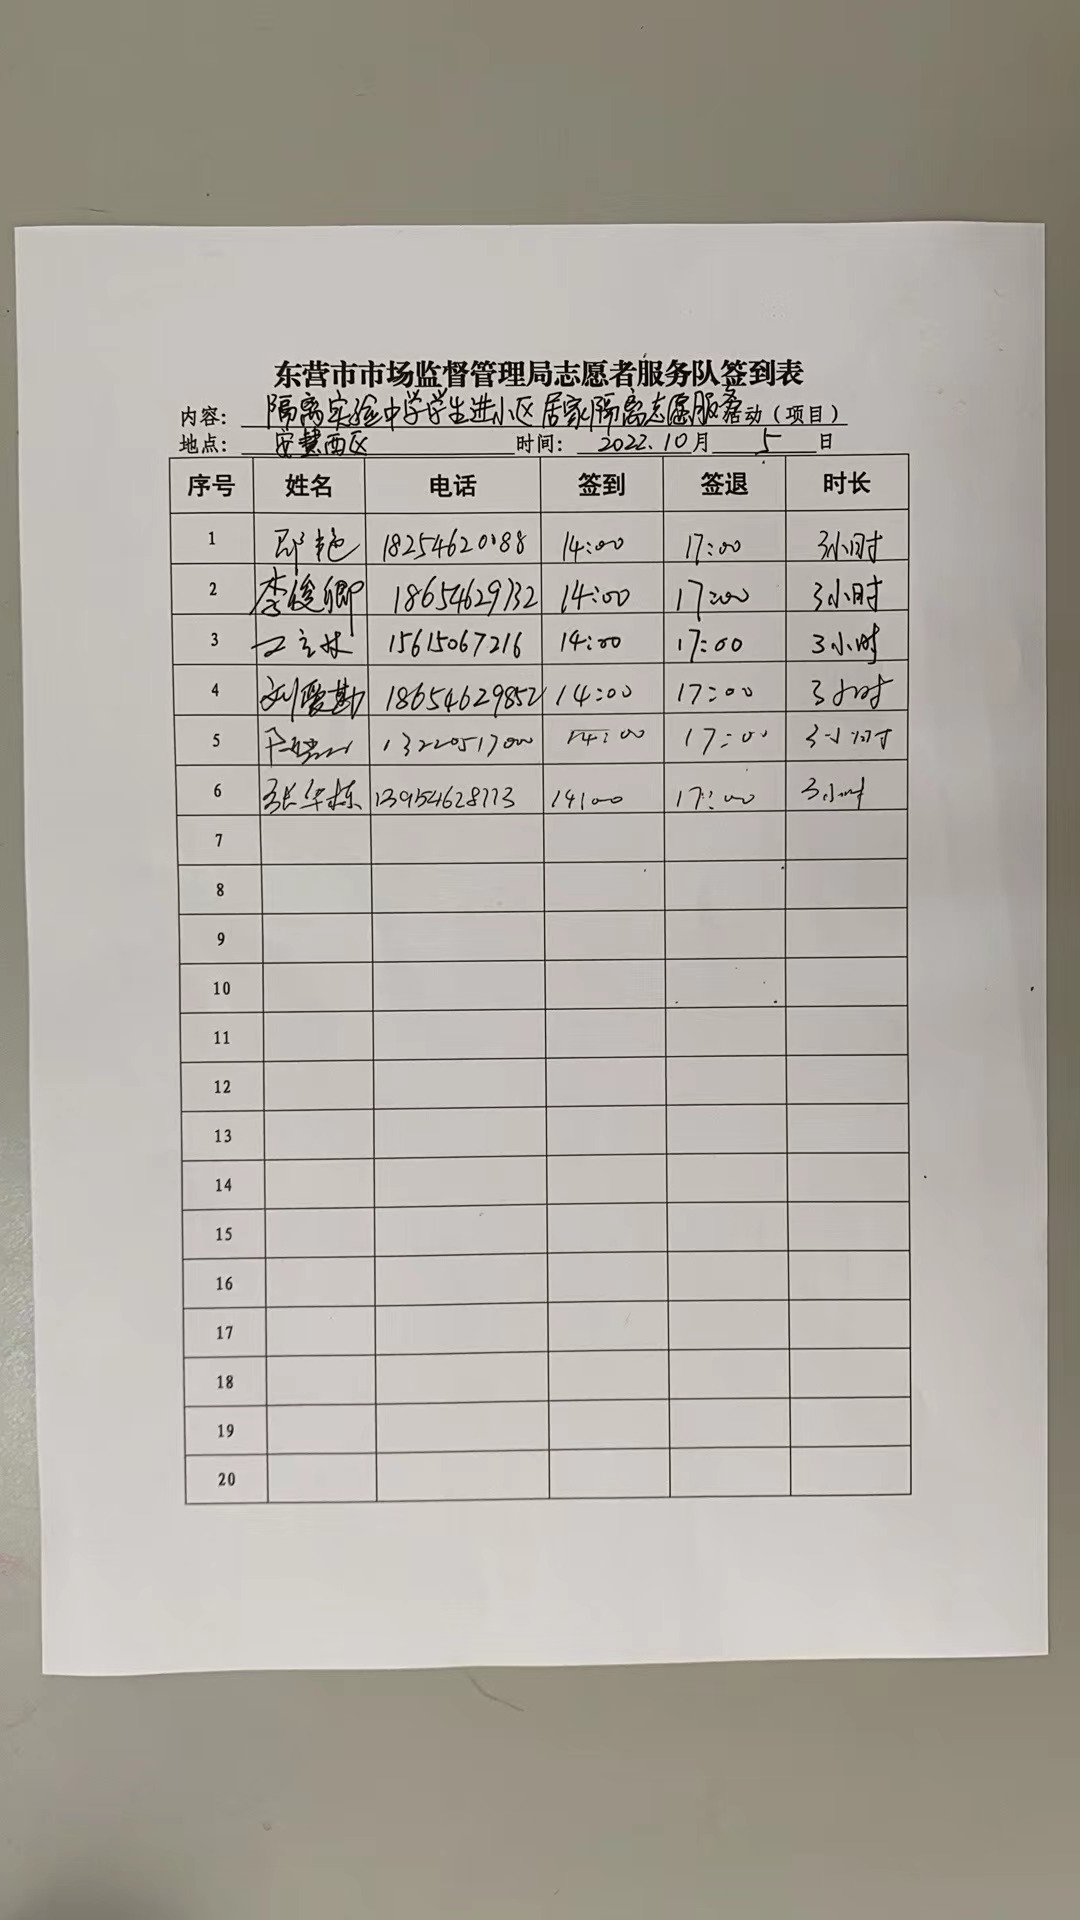 东营市市场监督管理局志愿者服务队签到表
内容：隔离实验中学学生进小区居家隔离志愿服务活动（项目）
地点：安慧西区 时间：2022.10月5日
序号 姓名 电话 签到 签退 时长
1 18254620188 14:00 17:00 3小时
2 李俊卿 18654629132 14:00 17:00 3小时
3 15615067216 14:00 17:00 3小时
4 18654629852 14:00 17:00 3小时
5 13220517000 14:00 17:00 3小时
6 张华栋 14:00 17:00 3小时
7
8
9
10
11
12
13
14
15
16
17
18
19
20